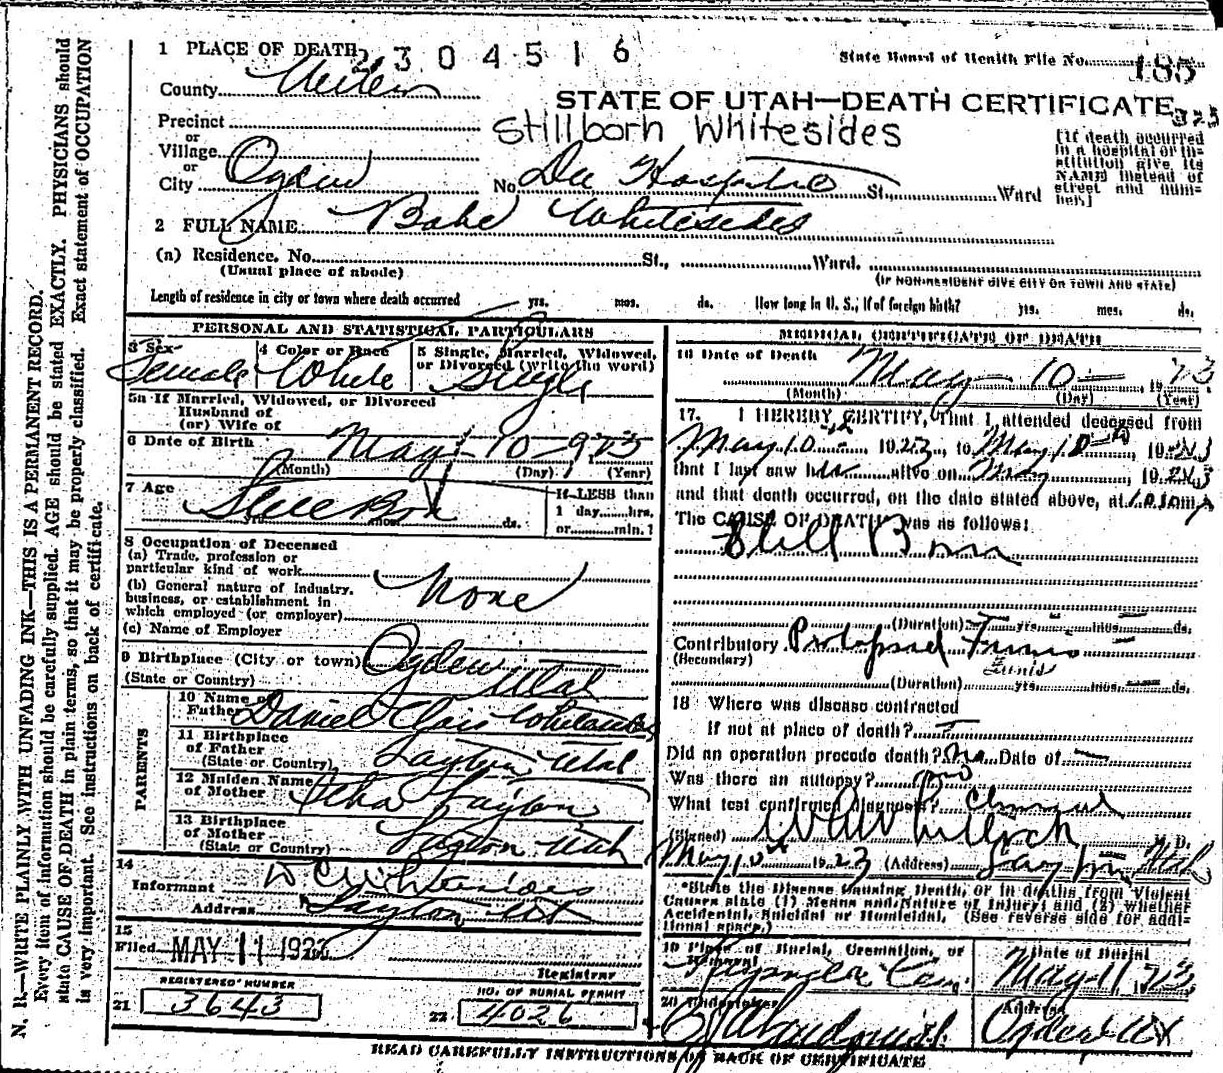 1 PLACE OF DEATH 2304516
State Board of Health File No. 185
County Weber
STATE OF UTAH—DEATH CERTIFICATE 325
Precinct
Stillborn Whitesides
or
Village
or
City Ogden No. Dee Hospital St., Ward
[If death occurred in a hospital or institution give its NAME instead of street and number.]
2 FULL NAME Babe Whitesides
(a) Residence. No. St., Ward.
(Usual place of abode) (IF NON-RESIDENT GIVE CITY OR TOWN AND STATE)
Length of residence in city or town where death occurred yrs. mos. ds. How long in U. S., If of foreign birth? yrs. mos. ds.
PERSONAL AND STATISTICAL PARTICULARS
3 Sex Female
4 Color or Race White
5 Single, Married, Widowed, or Divorced (write the word) Single
5a If Married, Widowed, or Divorced
Husband of
(or) Wife of
6 Date of Birth May 10 - 923
(Month) (Day) (Year)
7 Age Still Born
yrs. mos. ds.
If LESS than
1 day......hrs.
or......min.?
8 Occupation of Deceased
(a) Trade, profession or
particular kind of work
(b) General nature of Industry,
business, or establishment in
which employed (or employer) None
(c) Name of Employer
9 Birthplace (City or town) Ogden
(State or Country) Utah
PARENTS
10 Name of
Father Daniel Whitesides
11 Birthplace
of Father
(State or Country) Layton Utah
12 Maiden Name
of Mother Layton
13 Birthplace
of Mother
(State or Country) Layton Utah
14
Informant D C Whitesides
Address Layton Ut
15
Filed MAY 11 1923
Registrar
REGISTERED NUMBER
21 3643
NO. OF BURIAL PERMIT
22 4026
MEDICAL CERTIFICATE OF DEATH
16 Date of Death May - 10 - 1923
(Month) (Day) (Year)
17. I HEREBY CERTIFY, That I attended deceased from
May 10 1923, to May 10 1923
that I last saw h alive on May 1923
and that death occurred, on the date stated above, at m
The CAUSE OF DEATH was as follows:
Still Born
(Duration) yrs. mos. ds.
Contributory Prolapsed Funis
(Secondary) Funis
(Duration) yrs. mos. ds.
18 Where was disease contracted
If not at place of death?
Did an operation precede death? no Date of
Was there an autopsy? no
What test confirmed diagnosis? Clinical
(Signed) M. D.
May 10 1923 (Address) Layton Utah
*State the Disease Causing Death, or in deaths from Violent
Causes state (1) Means and Nature of Injury; and (2) whether
Accidental, Suicidal or Homicidal. (See reverse side for additional space.)
19 Place of Burial, Cremation, or
Removal Cem.
Date of Burial
May 11 1923
20 Undertaker
Address
Ogden Ut
READ CAREFULLY INSTRUCTIONS ON BACK OF CERTIFICATE
N. B.—WRITE PLAINLY WITH UNFADING INK—THIS IS A PERMANENT RECORD.
Every item of information should be carefully supplied. AGE should be stated EXACTLY. PHYSICIANS should
state CAUSE OF DEATH in plain terms, so that it may be properly classified. Exact statement of OCCUPATION
is very important. See instructions on back of certificate.